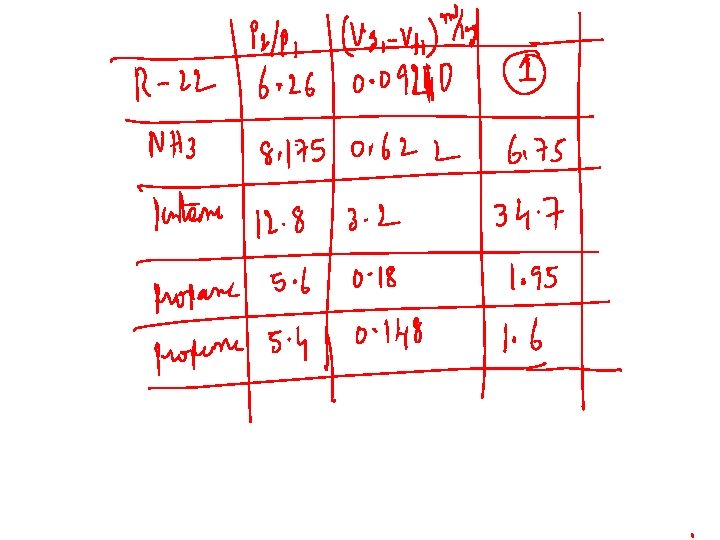 P2/P1 (Vg1-Vf1) m3/kg
R-22 6.26 0.092 1
NH3 8.175 0.622 6.75
12.8 3.2 34.7
propane 5.6 0.18 1.95
propene 5.4 0.148 1.6